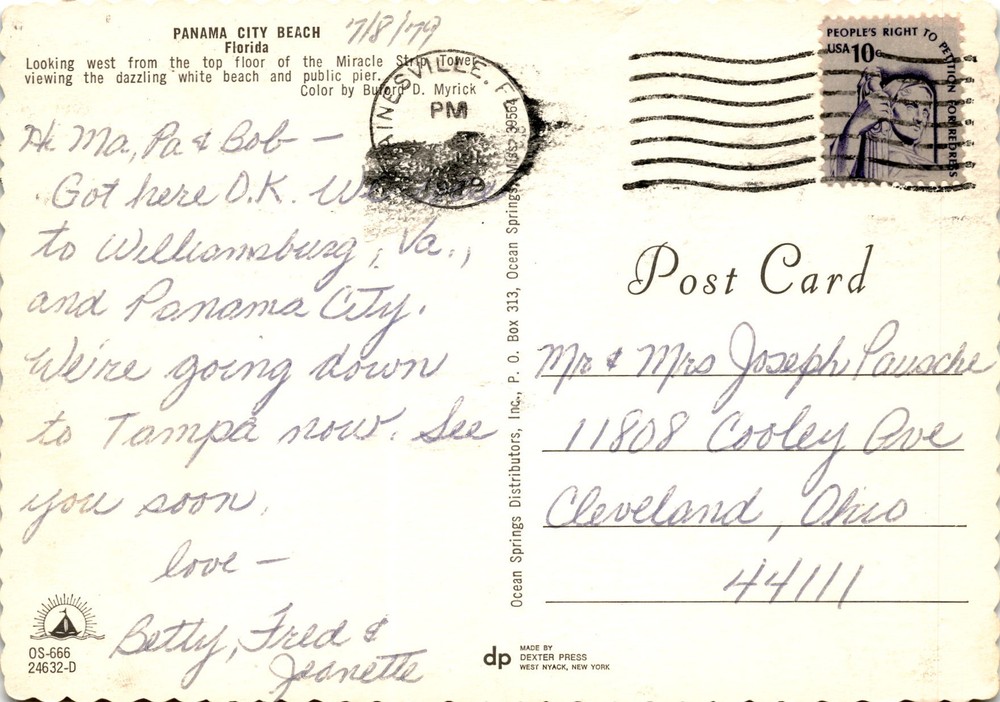 PANAMA CITY BEACH
Florida
Looking west from the top floor of the Miracle Strip Tower
viewing the dazzling white beach and public pier.
Color by Buford D. Myrick
7/8/79
Hi Ma, Pa & Bob —
Got here O.K. We
to Williamsburg, Va.,
and Panama City.
We're going down
to Tampa now. See
you soon.
love —
Betty, Fred &
Jeanette
OS-666
24632-D
AINESVILLE, FL
PM
Ocean Springs Distributors, Inc., P. O. Box 313, Ocean Springs, Miss. 39564
PEOPLE'S RIGHT TO PETITION FOR REDRESS
USA 10c
Post Card
Mr & Mrs Joseph Pausche
11808 Cooley Ave
Cleveland, Ohio
44111
dp
MADE BY
DEXTER PRESS
WEST NYACK, NEW YORK